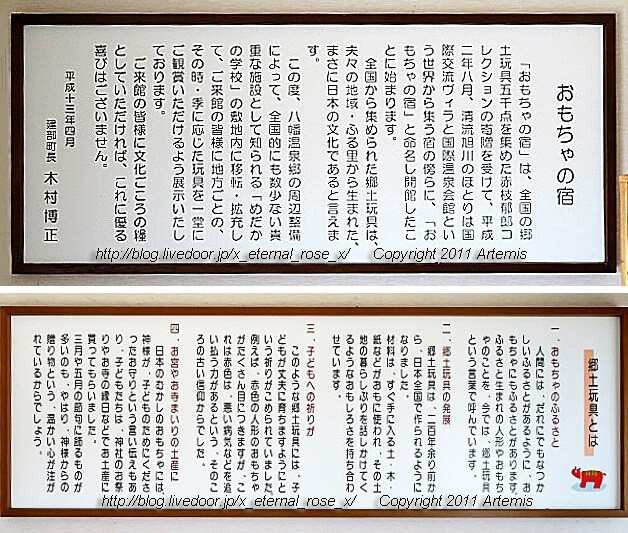 おもちゃの宿
「おもちゃの宿」は、全国の郷
土玩具五千点を集めた赤枝郁郎コ
レクションの寄贈を受けて、平成
二年八月、清流旭川のほとりは国
際交流ヴィラと国際温泉会館とい
う世界から集う宿の傍らに、「お
もちゃの宿」と命名し開館したこ
とに始まります。
全国から集められた郷土玩具は、
夫々の地域・ふる里から生まれた、
まさに日本の文化であると言えま
す。
この度、八幡温泉郷の周辺整備
によって、全国的にも数少ない貴
重な施設として知られる「めだか
の学校」の敷地内に移転・拡充し
て、ご来館の皆様に地方ごとの、
その時・季に応じた玩具を一堂に
ご観賞いただけるよう展示いたし
ております。
ご来館の皆様に文化ごころの糧
としていただければ、これに優る
喜びはございません。
平成十三年四月
建部町長 木村博正
http://blog.livedoor.jp/x_eternal_rose_x/ Copyright 2011 Artemis
郷土玩具とは
一、おもちゃのふるさと
人間には、だれにでもなつか
しいふるさとがあるように、お
もちゃにもふるさとがあります。
ふるさと生まれの人形やおもち
ゃのことを、今では、郷土玩具
という言葉で呼んでいます。
二、郷土玩具の発展
郷土玩具は、二百年余り前か
ら、日本全国で作られるように
なりました。
材料は、すぐ手に入る土・木・
紙などがおもに使われ、その土
地の暮らしぶりを話しかけてく
るようなおもしろさを持ち合わ
せています。
三、子どもへの祈りが
このような郷土玩具には、子
どもが丈夫に育ちますようにと
いう祈りがこめられていました。
例えば、赤色の人形のおもちゃ
がたくさん目につきますが、こ
れは赤色は、悪い病気などを追
い払う力があるという、そのこ
ろの古い信仰からでした。
四、お宮やお寺まいりの土産に
日本のむかしのおもちゃには、
神様が、子どものためにくださ
ったお守りという言い伝えもあ
り、子どもたちは、神社のお祭
りやお寺の縁日などでお土産に
買ってもらいました。
三月や五月の節句に飾るものが
多いのも、やはり、神様からの
贈り物という、温かい心が注が
れているからでしょう。
http://blog.livedoor.jp/x_eternal_rose_x/ Copyright 2011 Artemis